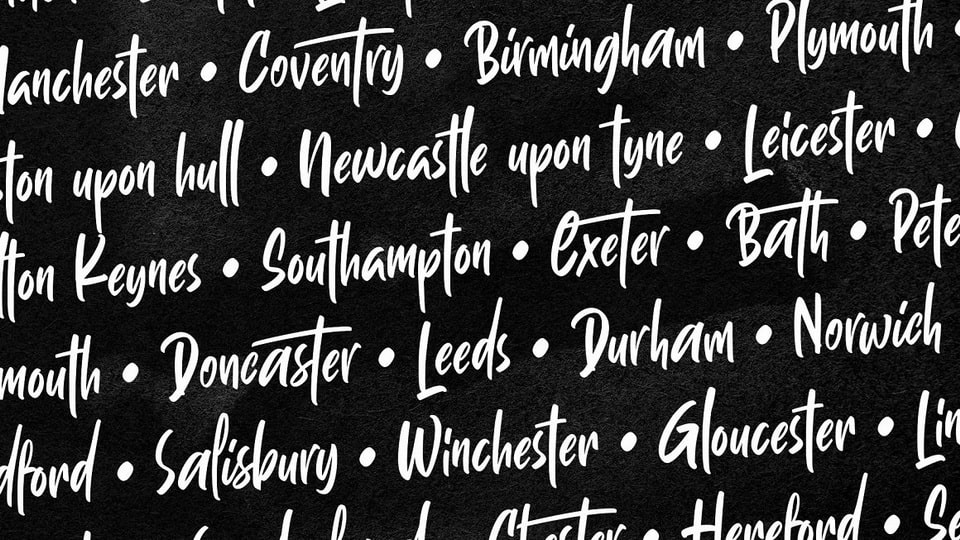 anchester • Coventry • Birmingham • Plymouth •
ston upon hull • Newcastle upon tyne • Leicester •
lton Keynes • Southampton • Exeter • Bath • Pete
mouth • Doncaster • Leeds • Durham • Norwich
dford • Salisbury • Winchester • Gloucester • Lin
Chester • Hereford • Se